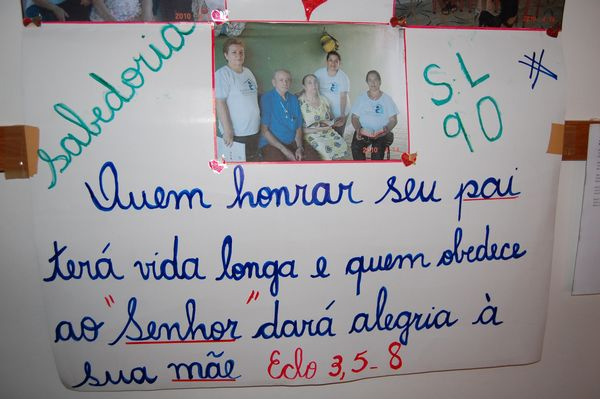 Sabedoria
SL
90
Quem honrar seu pai
terá vida longa e quem obedece
ao "Senhor" dará alegria à
sua mãe Eclo 3,5-8